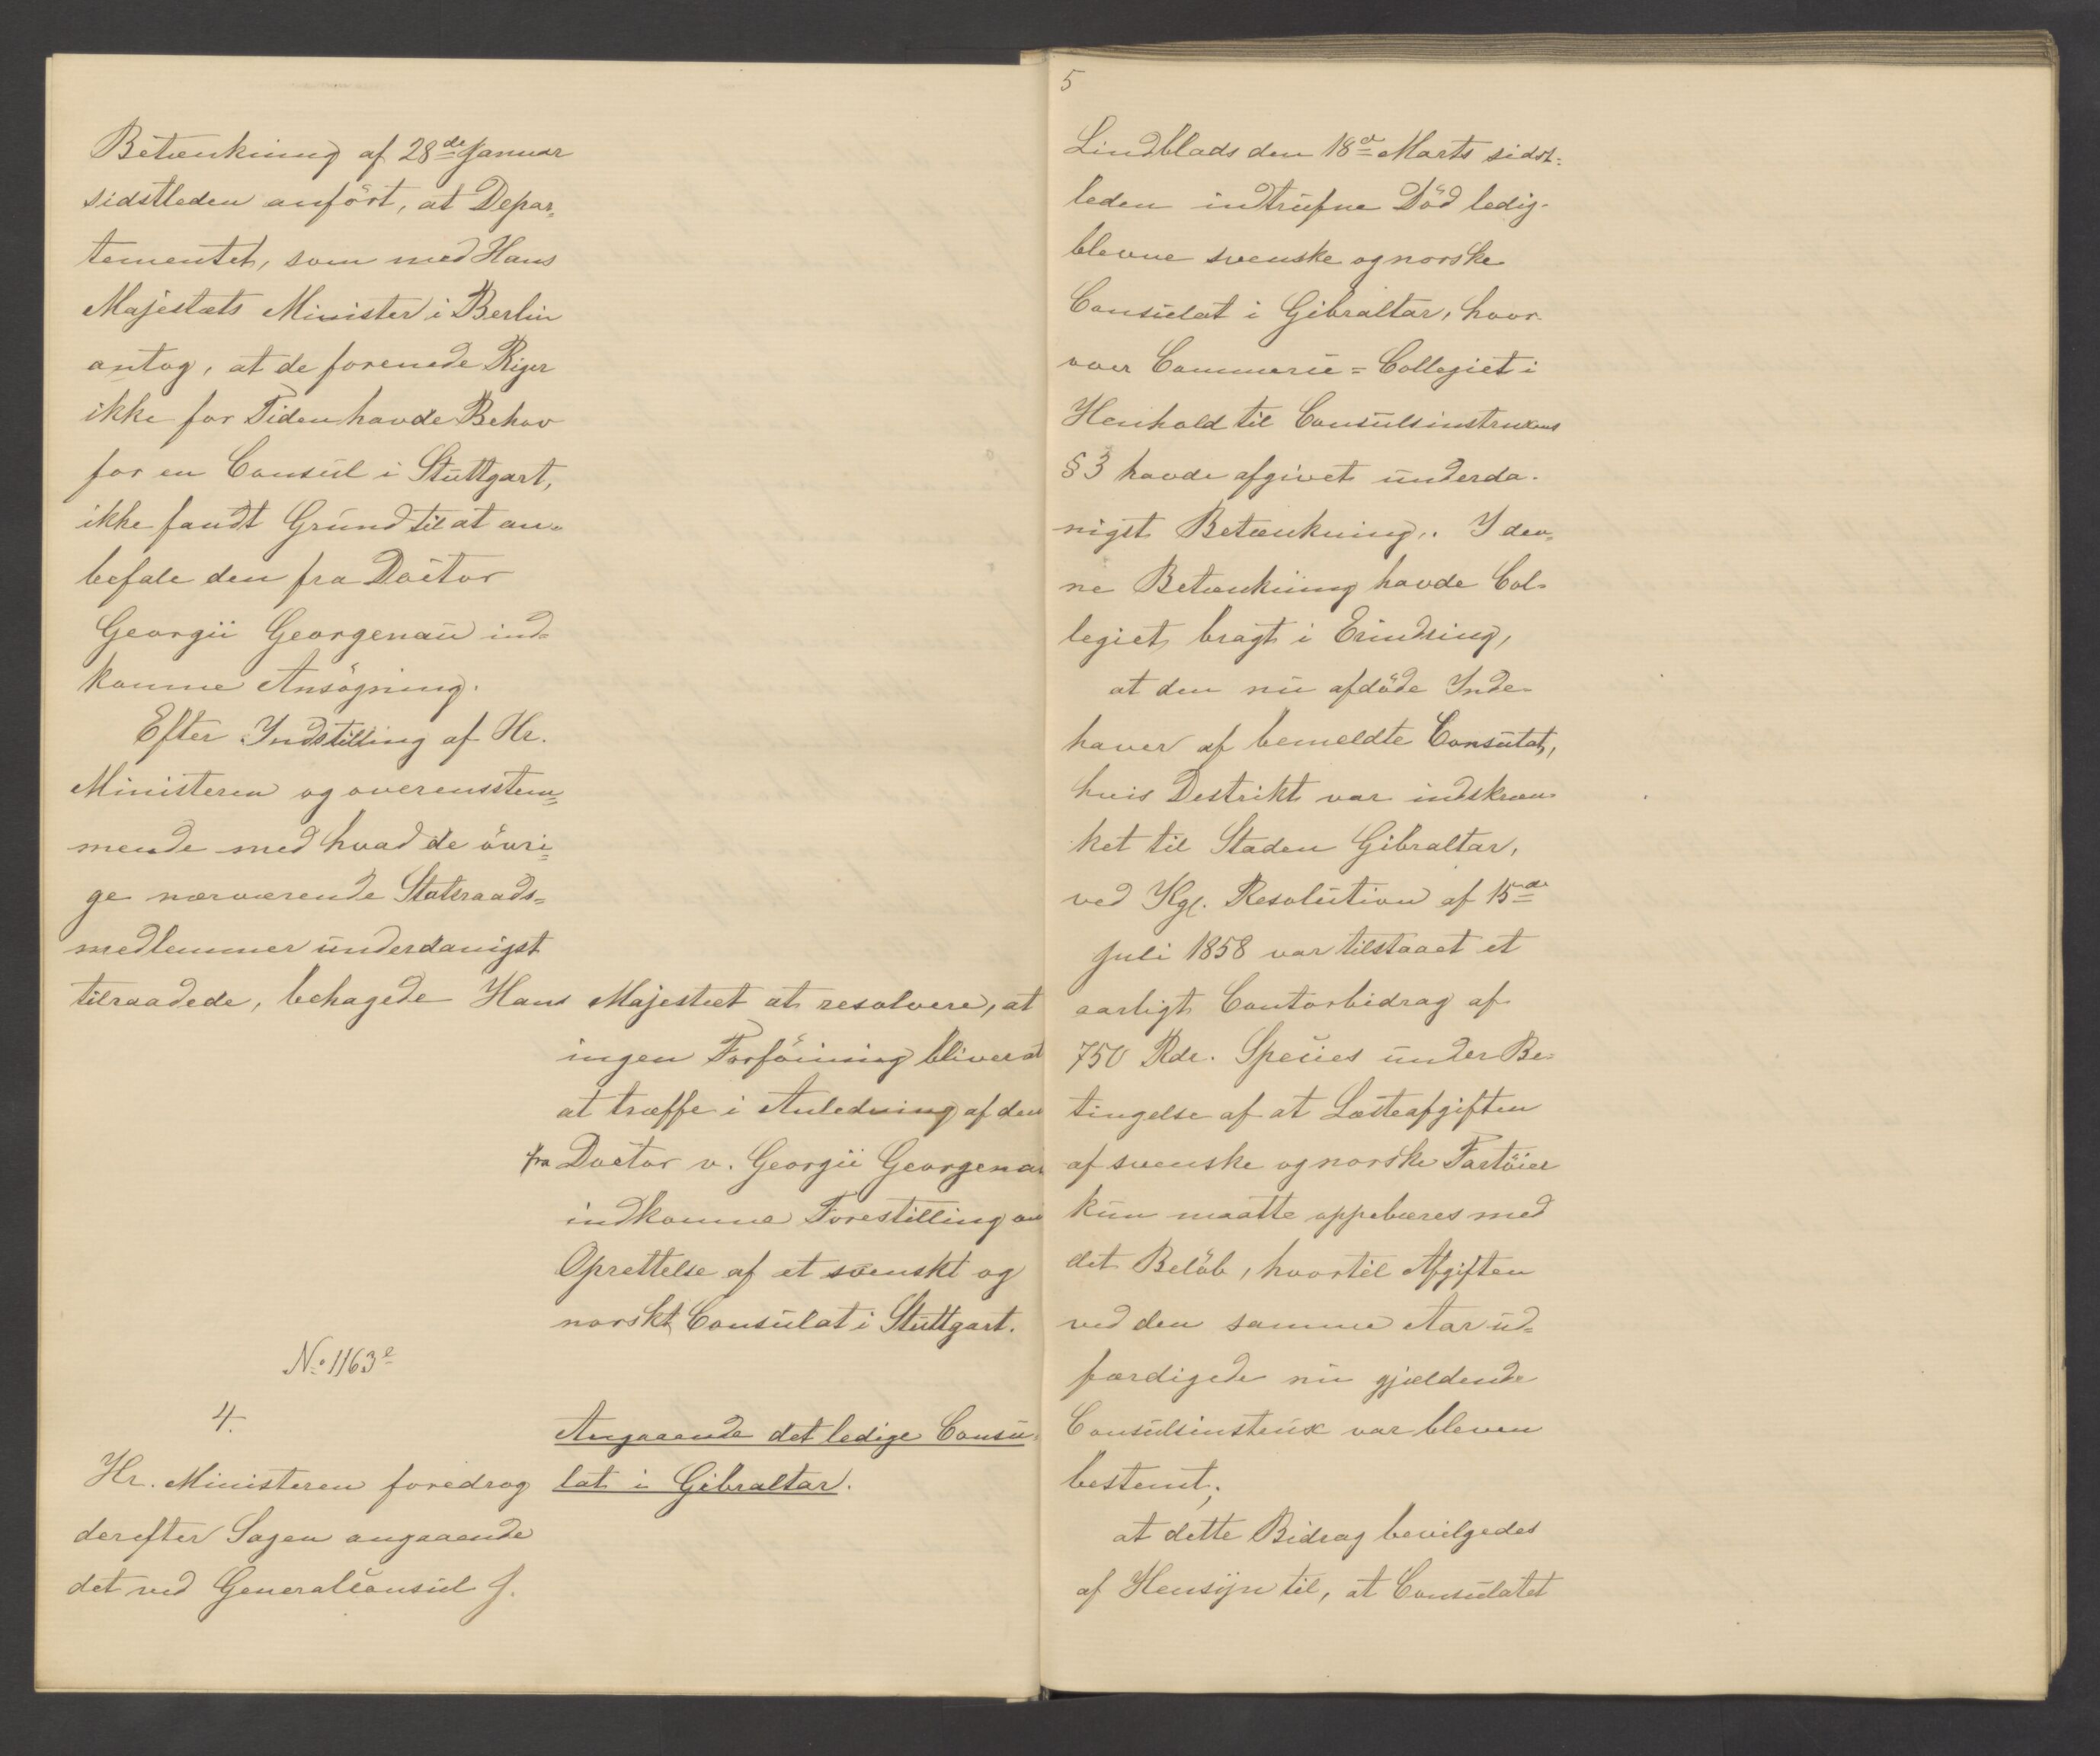 Betænkning af 28de Januar
sidstleden anført, at Depar-
tementet, som med Hans
Majestæts Minister i Berlin
antog, at de forenede Riger
ikke for Tiden havde Behov
for en Consul i Stuttgart,
ikke fandt Grund til at an-
befale den fra Doctor
Georgii Georgenau ind-
komne Ansøgning.
Efter Indstilling af Hr.
Ministeren og overensstem-
mende med hvad de övri-
ge nærværende Statsraads-
medlemmer underdanigst
tilraadede, behagede Hans Majestæt at resolvere, at
ingen Forföining bliver
at træffe i Anledning af den
fra Doctor v. Georgii Georgenau
indkomne Forestilling om
Oprettelse af et svenskt og
norskt Consulat i Stuttgart.
No. 1163e
4.
Angaaende det ledige Consu-
lat i Gibraltar.
Hr. Ministeren foredrog
derefter Sagen angaaende
det ved Generalconsul J.
5
Lindblads den 18de Marts sidst-
leden indtrufne Död ledig-
blevne svenske og norske
Consulat i Gibraltar, hvor-
over Commerce-Collegiet i
Henhold til Consulsinstruxens
§ 3 havde afgivet underda-
nigst Betænkning. I den-
ne Betænkning havde Col-
legiet bragt i Erindring,
at den nu afdöde Inde-
haver af bemeldte Consulat,
hvis Destrikt var indskræn-
ket til Staden Gibraltar,
ved Kgl. Resolution af 15de
Juli 1858 var tilstaaet et
aarligt Contorbidrag af
750 Rdr. Species under Be-
tingelse af at Læsteafgiften
af svenske og norske Fartöier
kun maatte oppebæres med
det Belöb, hvortil Afgiften
ved den samme Aar ud-
færdigede nu gjældende
Consulsinstrux var bleven
bestemt;
at dette Bidrag bevilgedes
af Hensyn til, at Consulatet